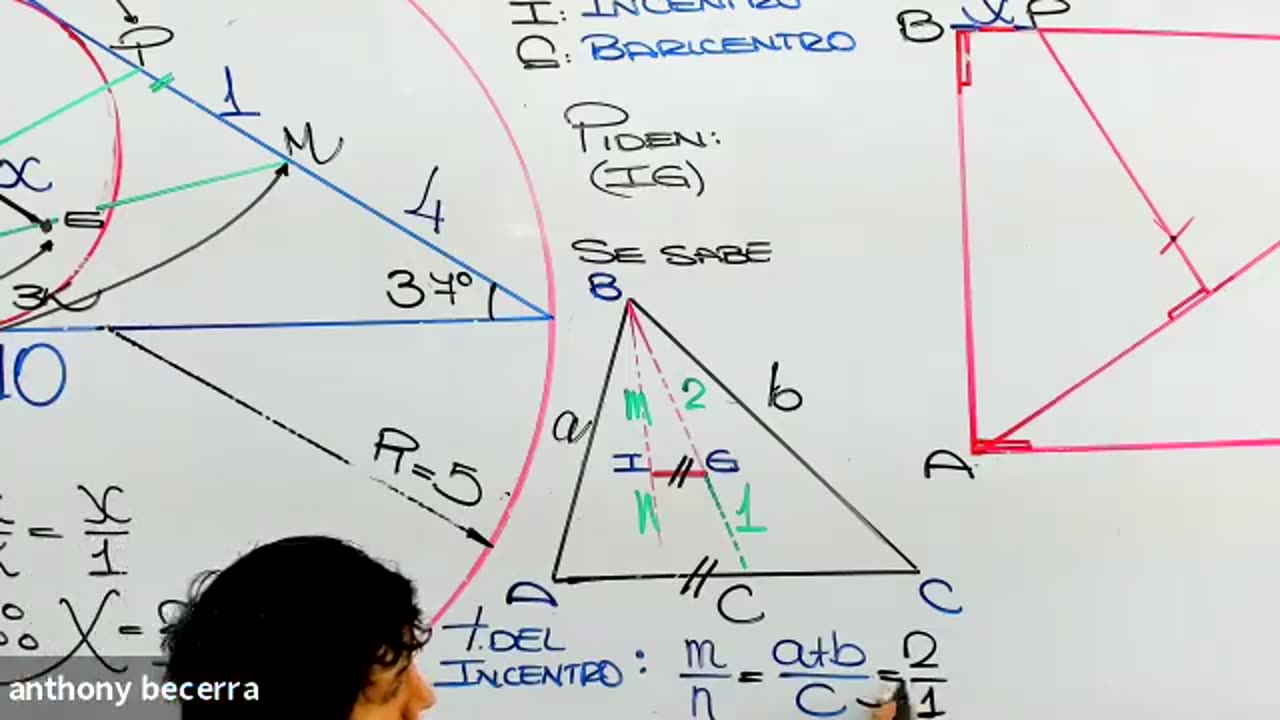 I: INCENTRO
G: BARICENTRO
PIDEN:
(IG)
SE SABE
P
1
M
x
4
G
37°
10
R=5
= x/1
X=
B
a
m
2
b
I
G
n
1
A
C
C
T. DEL
INCENTRO: m/n = a+b/C = 2/1
B
X
P
A
anthony becerra